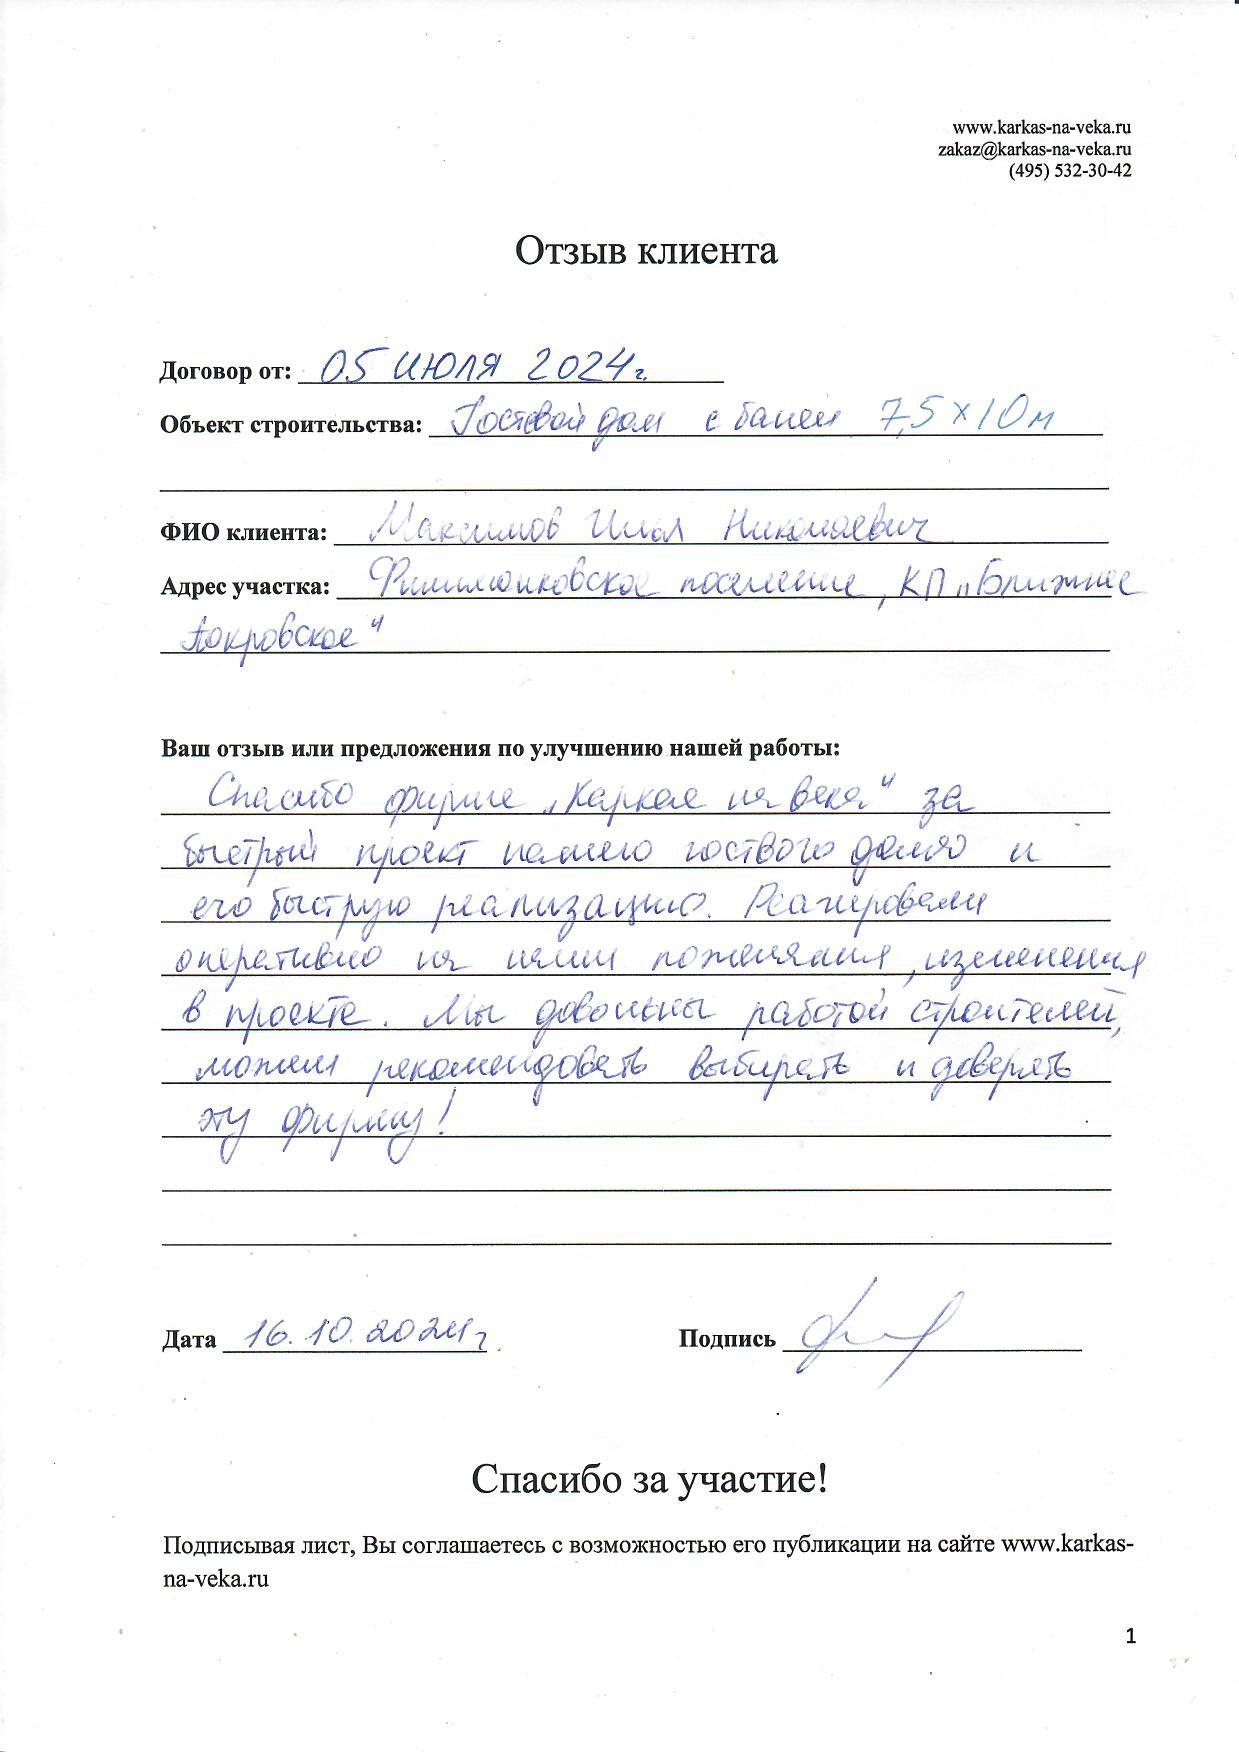 www.karkas-na-veka.ru
zakaz@karkas-na-veka.ru
(495) 532-30-42
Отзыв клиента
Договор от: 05 ИЮЛЯ 2024г.
Объект строительства: Гостевой дом с баней 7,5 х 10 м
ФИО клиента: Максимов Илья Николаевич
Адрес участка: Филимонковское поселение, КП „Ближнее
Покровское"
Ваш отзыв или предложения по улучшению нашей работы:
Спасибо фирме „Каркас на века" за
быстрый проект нашего гоствого дома и
его быструю реализацию. Реагировали
оперативно на наши пожелания, изменения
в проекте. Мы довольны работой строителей,
можем рекомендовать выбирать и доверять
эту фирму!
Дата 16.10.2024г.
Подпись
Спасибо за участие!
Подписывая лист, Вы соглашаетесь с возможностью его публикации на сайте www.karkas-
na-veka.ru
1